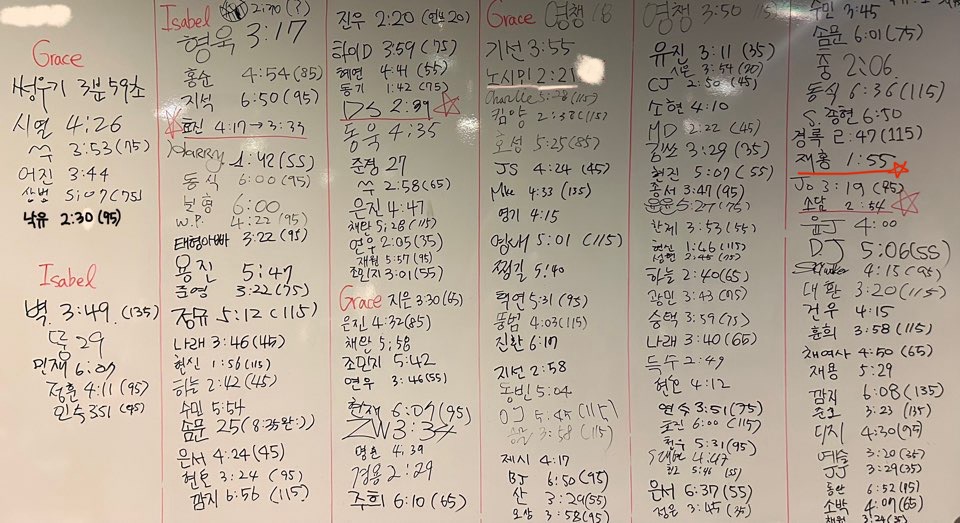 Grace
썽우기 3분59초
시열 4:26
쑥 3:53(75)
어진 3:44
산범 5:07(75)
낙유 2:30(95)
Isabel
벽. 3:49. (135)
똠 29
민재 6:07
정훈 4:11(95)
민숙 351 (95)
Isabel 2:30(?)
형욱 3:17
홍순 4:54(85)
지석 6:50(95)
효진 4:17→3:33
Harry 1:42(55)
동식 6:00(95)
보영 6:00
W.P. 4:22(95)
태형아빠 3:22(95)
용진 5:47
준영 3:22(75)
정규 5:12(115)
나래 3:46(45)
현신 1:56(115)
하늘 2:42(45)
수민 5:54
솜문 25(8:35완:))
은서 4:24(45)
현호 3:24 (95)
깜지 6:56(115)
진우 2:20
하이D 3:59(75)
혜연 4:41(55)
동기 1:42(75)
DS 2:39
동욱 4:35
준정 27
쑥 2:58(65)
은진 4:47
채안 5:28(115)
연우 2:05(35)
재원 5:57(95)
조민지 3:01(55)
Grace 지은 3:30(65)
은진 4:32(85)
채안 5:58
조민지 5:42
연우 3:46(55)
현재 6:07(95)
ZW 3:34
명훈 4:39
경용 2:29
주희 6:10(65)
Grace 영챙
기선 3:55
노시민 2:21
Charlie 5:28(115)
킴양 2:38(115)
호성 5:25(85)
JS 4:24(45)
Mke 4:33(135)
영기 4:15
영새 5:01(115)
쩡길 5:40
혁연 5:31(95)
똥범 4:03(115)
진환 6:17
지선 2:58
동빈 5:04
OJ 5:45(115)
3:58(115)
제시 4:17
BJ 6:50(95)
산 3:29(55)
오상 3:58(95)
영챙 3:50
유진 3:11(35)
3:54
CJ 2:50(45)
소현 4:10
MD 2:22(45)
킴쓰 3:29(35)
현진 5:07(55)
종서 3:47(95)
윤윤 5:27(75)
한제 3:53(55)
현신 1:46(115)
하늘 2:40(65)
광민 3:43(75)
승택 3:59(75)
나래 3:40(65)
득수 2:49
현호 4:12
연수 3:51(75)
효진 6:00(115)
현수 5:31(95)
4:47
5:46 (55)
은서 6:37(55)
정은 3:45(35)
수민 3:45
솜문 6:01(75)
중 2:06.
동식 6:36(115)
S. 종현 6:50
경록 2:47(115)
재홍 1:55
Jo 3:19(95)
소담 2:54
윤J 4:00
DJ 5:06(55)
4:15(95)
대환 3:20(115)
건우 4:15
훈희 3:58(115)
채여사 4:50(65)
재용 5:29
깜지 6:08(135)
준호 3:23 (135)
디지 4:30(95)
예슬 3:20(35)
JJ 3:29(35)
동산 6:52(85)
소박 4:07(65)
채원 3:24(35)